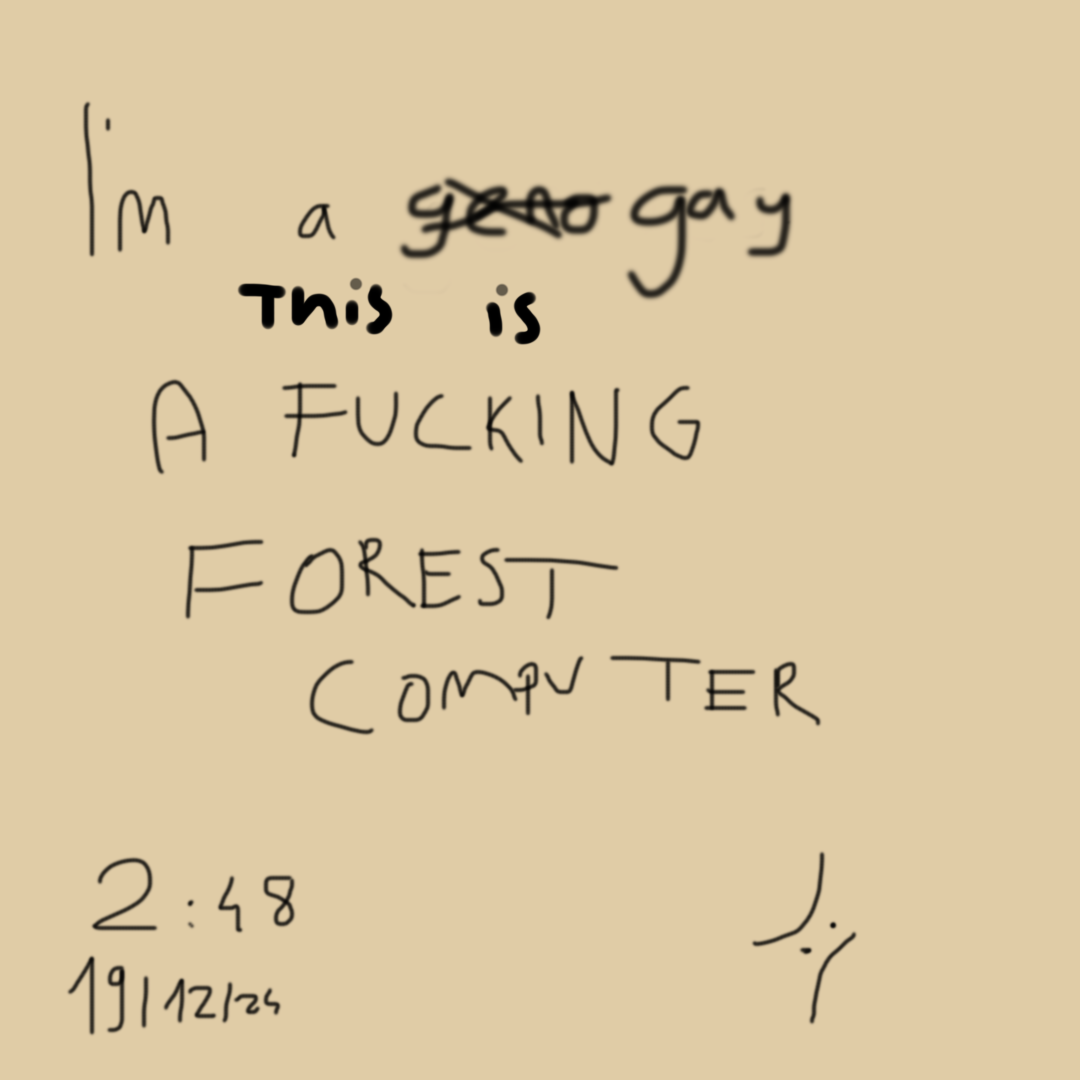 I'm a geno gay
This is
A FUCKING
FOREST
COMPUTER
2:48
19/12/24